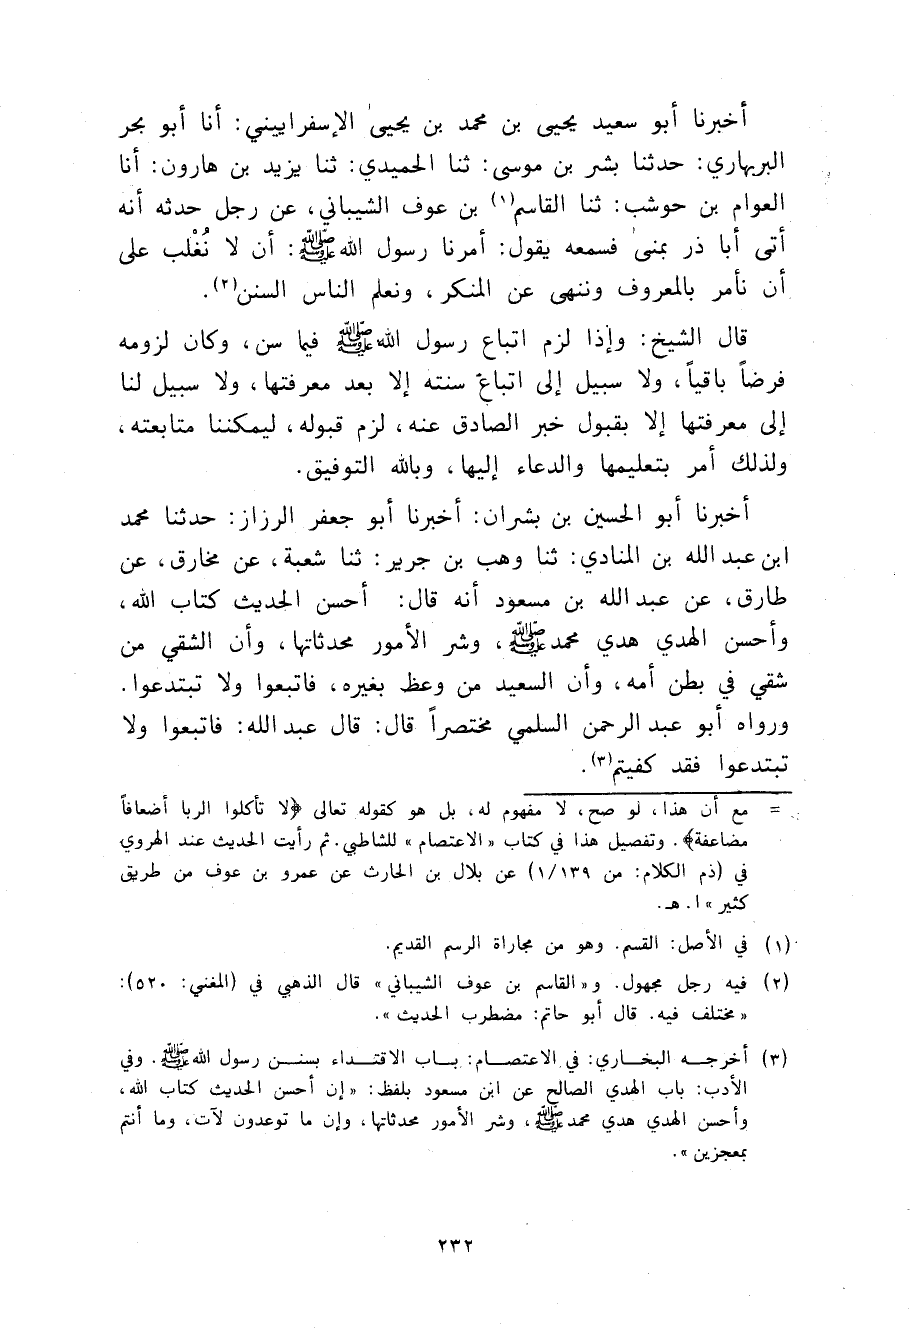 أخبرنا أبو سعيد يحيى بن محمد بن يحيىٰ الإسفراييني: أنا أبو بحر
البربهاري: حدثنا بشر بن موسى: ثنا الحميدي: ثنا يزيد بن هارون: أنا
العوام بن حوشب: ثنا القاسم(١) بن عوف الشيباني، عن رجل حدثه أنه
أتى أبا ذر بمنىٰ فسمعه يقول: أمرنا رسول الله ﷺ: أن لا نُغْلب على
أن نأمر بالمعروف وننهى عن المنكر، ونعلم الناس السنن(٢).
قال الشيخ: وإذا لزم اتباع رسول الله ﷺ فيما سن، وكان لزومه
فرضاً باقياً، ولا سبيل إلى اتباع سنته إلا بعد معرفتها، ولا سبيل لنا
إلى معرفتها إلا بقبول خبر الصادق عنه، لزم قبوله، ليمكننا متابعته،
ولذلك أمر بتعليمها والدعاء إليها، وبالله التوفيق.
أخبرنا أبو الحسين بن بشران: أخبرنا أبو جعفر الرزاز: حدثنا محمد
ابن عبد الله بن المنادي: ثنا وهب بن جرير: ثنا شعبة، عن مخارق، عن
طارق، عن عبد الله بن مسعود أنه قال: أحسن الحديث كتاب الله،
وأحسن الهدي هدي محمد ﷺ، وشر الأمور محدثاتها، وأن الشقي من
شقي في بطن أمه، وأن السعيد من وعظ بغيره، فاتبعوا ولا تبتدعوا.
ورواه أبو عبد الرحمن السلمي مختصراً قال: قال عبد الله: فاتبعوا ولا
تبتدعوا فقد كفيتم(٣).
= مع أن هذا، لو صح، لا مفهوم له، بل هو كقوله تعالى ﴿لا تأكلوا الربا أضعافاً
مضاعفة﴾. وتفصيل هذا في كتاب «الاعتصام» للشاطبي. ثم رأيت الحديث عند الهروي
في (ذم الكلام: من ١/١٣٩) عن بلال بن الحارث عن عمرو بن عوف من طريق
كثير» ا. هـ.
(١) في الأصل: القسم. وهو من مجاراة الرسم القديم.
(٢) فيه رجل مجهول. و«القاسم بن عوف الشيباني» قال الذهبي في (المغني: ٥٢٠):
«مختلف فيه. قال أبو حاتم: مضطرب الحديث».
(٣) أخرجـه البخاري: في الاعتصـام: بـاب الاقتـداء بسنـن رسول الله ﷺ. وفي
الأدب: باب الهدي الصالح عن ابن مسعود بلفظ: «إن أحسن الحديث كتاب الله،
وأحسن الهدي هدي محمد ﷺ، وشر الأمور محدثاتها، وإن ما توعدون لآت، وما أنتم
بمعجزين».
٢٣٢